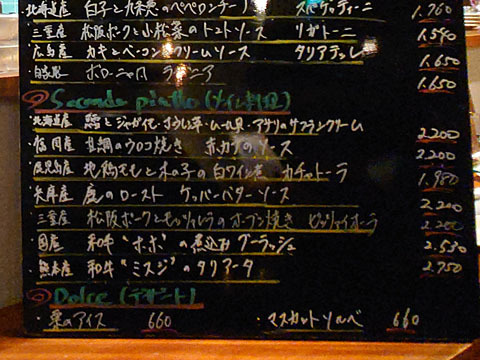 北海道産 白子と九条葱のペペロンチーノ スパゲッティーニ 1.760
三重産 松阪ポークと小松菜のトマトソース リガトーニ 1.540
広島産 カキとベーコン クリームソース タリアテッレ 1.650
自家製 ボローニャ風 ラザニア 1.650
② Secondo piatto (メイン料理)
北海道産 鱈とジャガ芋・ほうれん草・ムール貝・アサリのサフランクリーム 2.200
福岡産 真鯛のウロコ焼き 赤カブのソース 2.200
鹿児島産 地鶏ももと木の子の白ワイン煮 カチャトーラ 1.980
兵庫産 鹿のロースト ケッパーバターソース 2.200
三重産 松阪ポークとモッツァレラのオーブン焼き ピッツァイオーラ 2.200
国産 和牛"ホホ"の煮込み グーラッシュ 2.530
熊本産 和牛"ミスジ"のタリアータ 2.750
Dolce (デザート)
・栗のアイス 660 ・マスカットソルベ 660